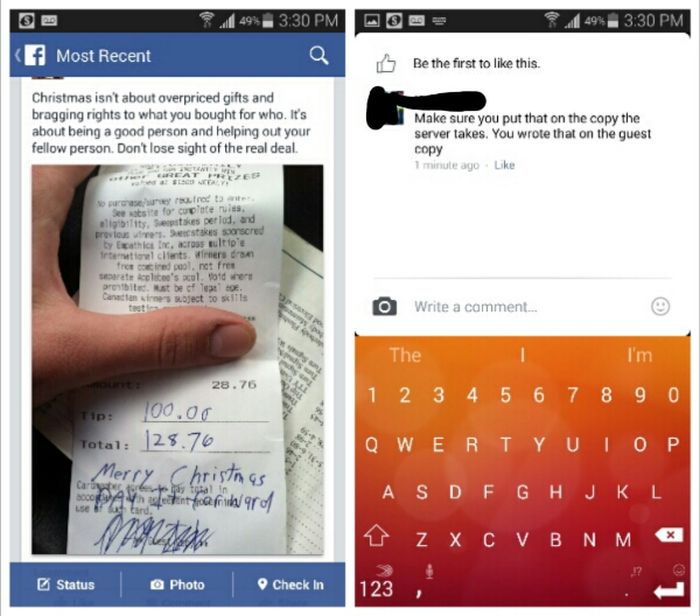 49% 3:30 PM
Most Recent
Christmas isn't about overpriced gifts and
bragging rights to what you bought for who. It's
about being a good person and helping out your
fellow person. Don't lose sight of the real deal.
other GREAT PRIZES
valued at $1500 WEEKLY!
No purchase/survey required to enter.
See website for complete rules,
eligibility, Sweepstakes period, and
previous winners. Sweepstakes sponsored
by Empathica Inc, across multiple
international clients. Winners drawn
from combined pool, not from
separate Applebee's pool. Void where
prohibited. Must be of legal age.
Canadian winners subject to skills
Amount: 28.76
Tip: 100.00
Total: 128.76
Merry Christmas
Pay It Forward
Cardmember agrees to pay total in
accordance with agreement governing
use of such card.
Status
Photo
Check In
49% 3:30 PM
Be the first to like this.
Make sure you put that on the copy the
server takes. You wrote that on the guest
copy
1 minute ago · Like
Write a comment...
The I I'm
1 2 3 4 5 6 7 8 9 0
Q W E R T Y U I O P
A S D F G H J K L
Z X C V B N M
123 , !? .